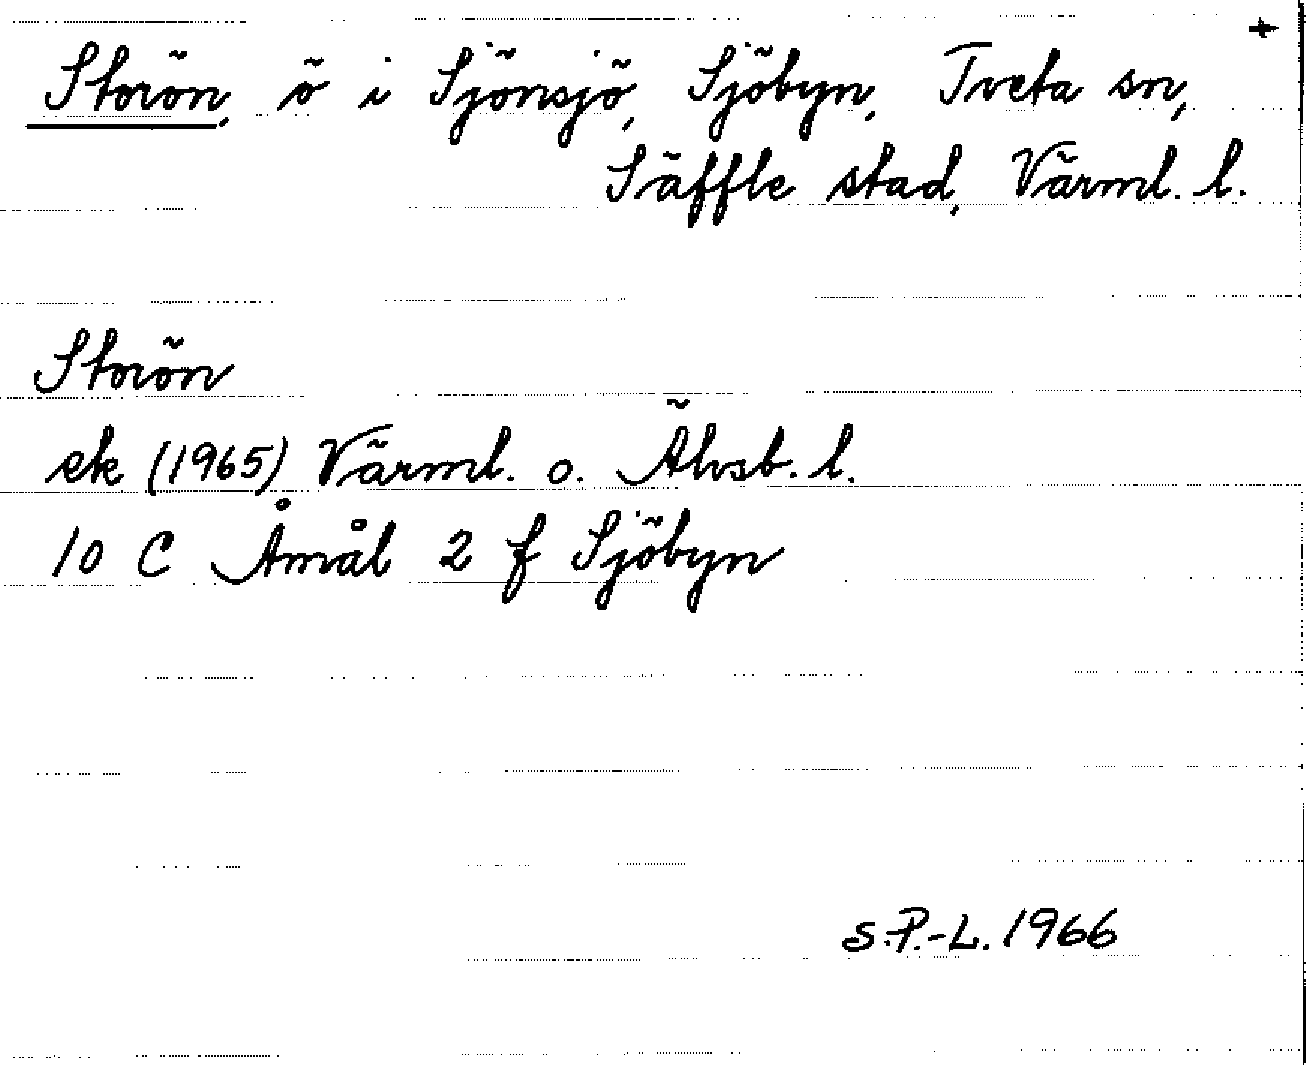 +
Storön, ö i Sjönsjö, Sjöbyn, Tveta sn,
Säffle stad, Värml. l.
Storön
ek. (1965) Värml. o. Älvsb. l.
10 C Åmål 2 f Sjöbyn
S.P.-L. 1966